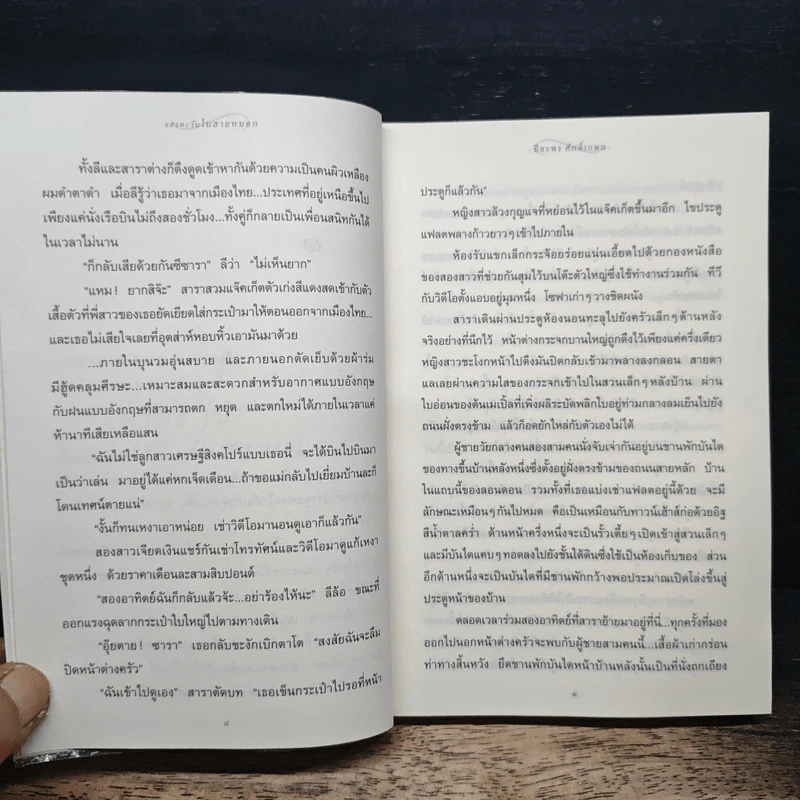 แสงตะวันในสายหมอก
ทั้งลีและสาราต่างก็ดึงดูดเข้าหากันด้วยความเป็นคนผิวเหลือง
ผมดำตาดำ เมื่อลีรู้ว่าเธอมาจากเมืองไทย...ประเทศที่อยู่เหนือขึ้นไป
เพียงแค่นั่งเรือบินไม่ถึงสองชั่วโมง...ทั้งคู่ก็กลายเป็นเพื่อนสนิทกันได้
ในเวลาไม่นาน
“ก็กลับเสียด้วยกันซีซารา” ลีว่า “ไม่เห็นยาก”
“แหม! ยากสิจ๊ะ” สาราสวมแจ๊คเก็ตตัวเก่งสีแดงสดเข้ากับตัว
เสื้อตัวที่พี่สาวของเธอยัดเยียดใส่กระเป๋ามาให้ตอนออกจากเมืองไทย...
และเธอไม่เสียใจเลยที่อุตส่าห์หอบหิ้วเอามันมาด้วย
...ภายในบุนวมอุ่นสบาย และภายนอกตัดเย็บด้วยผ้าร่ม
มีฮู้ดคลุมศีรษะ...เหมาะสมและสะดวกสำหรับอากาศแบบอังกฤษ
กับฝนแบบอังกฤษที่สามารถตก หยุด และตกใหม่ได้ภายในเวลาแค่
ห้านาทีเสียเหลือแสน
“ฉันไม่ใช่ลูกสาวเศรษฐีสิงคโปร์แบบเธอนี่ จะได้บินไปบินมา
เป็นว่าเล่น มาอยู่ได้แค่หกเจ็ดเดือน...ถ้าขอแม่กลับไปเยี่ยมบ้านละก็
โดนเทศน์ตายแน่”
“งั้นก็ทนเหงาเอาหน่อย เช่าวิดีโอมานอนดูเอาก็แล้วกัน”
สองสาวเจียดเงินแชร์กันเช่าโทรทัศน์และวิดีโอมาดูแก้เหงา
ชุดหนึ่ง ด้วยราคาเดือนละสามสิบปอนด์
“สองอาทิตย์ฉันก็กลับแล้วจ้ะ...อย่าร้องไห้นะ” ลีล้อ ขณะที่
ออกแรงฉุดลากกระเป๋าใบใหญ่ไปตามทางเดิน
“อุ๊ยตาย! ซารา” เธอกลับชะงักเบิกตาโต “สงสัยฉันจะลืม
ปิดหน้าต่างครัว”
“ฉันเข้าไปดูเอง” สาราตัดบท “เธอเข็นกระเป๋าไปรอที่หน้า
๘
ปิยะพร ศักดิ์เกษม
ประตูก็แล้วกัน”
หญิงสาวล้วงกุญแจที่หย่อนไว้ในแจ๊คเก็ตขึ้นมาอีก ไขประตู
แฟลตพลางก้าวยาวๆ เข้าไปภายใน
ห้องรับแขกเล็กกระจ้อยร่อยแน่นเอี้ยดไปด้วยกองหนังสือ
ของสองสาวที่ช่วยกันสุมไว้บนโต๊ะตัวใหญ่ซึ่งใช้ทำงานร่วมกัน ทีวี
กับวิดีโอตั้งแอบอยู่มุมหนึ่ง โซฟาเก่าๆ วางชิดผนัง
สาราเดินผ่านประตูห้องนอนทะลุไปยังครัวเล็กๆ ด้านหลัง
จริงอย่างที่นึกไว้ หน้าต่างกระจกบานใหญ่ถูกดึงไว้เพียงแค่ครึ่งเดียว
หญิงสาวชะโงกหน้าไปดึงมันปิดกลับเข้ามาพลางลงกลอน สายตา
แลเลยผ่านความใสของกระจกเข้าไปในสวนเล็กๆ หลังบ้าน ผ่าน
ใบอ่อนของต้นเมเปิ้ลที่เพิ่งผลิระบัดพลิกใบอยู่ท่ามกลางลมเย็นไปยัง
ถนนฝั่งตรงข้าม แล้วก็อดยักไหล่กับตัวเองไม่ได้
ผู้ชายวัยกลางคนสองสามคนนั่งจับเจ่ากันอยู่บนชานพักบันได
ของทางขึ้นบ้านหลังหนึ่งซึ่งตั้งอยู่ฝั่งตรงข้ามของถนนสายหลัก บ้าน
ในแถบนี้ของลอนดอน รวมทั้งที่เธอแบ่งเช่าแฟลตอยู่นี้ด้วย จะมี
ลักษณะเหมือนๆ กันไปหมด คือเป็นเหมือนกับทาวน์เฮ้าส์ก่อด้วยอิฐ
สีน้ำตาลคร่ำ ด้านหน้าครึ่งหนึ่งจะเป็นรั้วเตี้ยๆ เปิดเข้าสู่สวนเล็กๆ
และมีบันไดแคบๆ ทอดลงไปยังชั้นใต้ดินซึ่งใช้เป็นห้องเก็บของ ส่วน
อีกด้านหนึ่งจะเป็นบันไดที่มีชานพักกว้างพอประมาณเปิดโล่งขึ้นสู่
ประตูหน้าของบ้าน
ตลอดเวลาร่วมสองอาทิตย์ที่สาราย้ายมาอยู่ที่นี่...ทุกครั้งที่มอง
ออกไปนอกหน้าต่างครัวจะพบกับผู้ชายสามคนนี้...เสื้อผ้าเก่ากร่อน
ท่าทางสิ้นหวัง ยึดชานพักบันไดหน้าบ้านหลังนั้นเป็นที่นั่งถกเถียง
๙